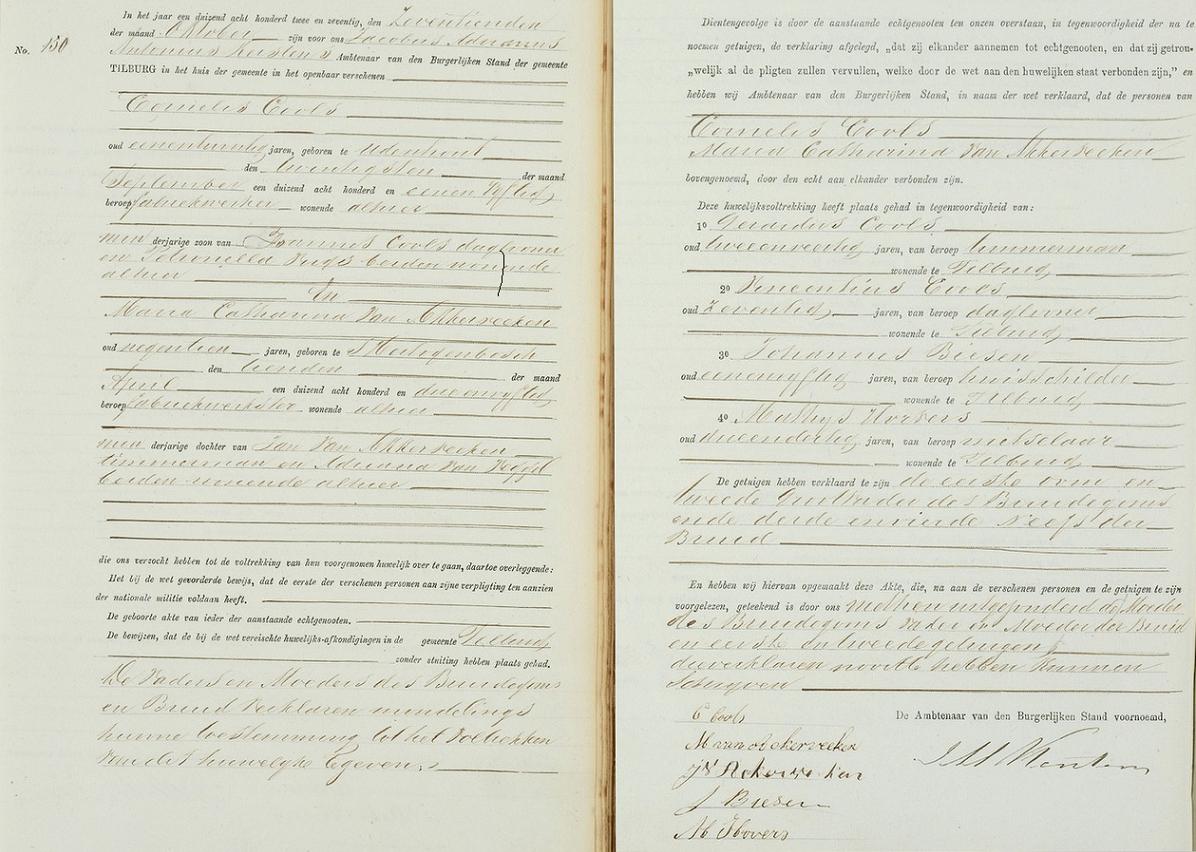 No. 150
In het jaar een duizend acht honderd twee en zeventig, den Zeventienden
der maand Oktober zijn voor ons Jacobus Adrianus
Antonius Ambtenaar van den Burgerlijken Stand der gemeente
TILBURG in het huis der gemeente in het openbaar verschenen
Cornelis Cools
oud eenentwintig jaren, geboren te Udenhout
den twintigsten der maand
September een duizend acht honderd en eenen vyftig
beroep fabriekwerker wonende alhier
min derjarige zoon van Joannes Cools daglooner
en Petronella beiden wonende
alhier
En
Maria Catharina Van Akkerveeken
oud negentien jaren, geboren te 'S Hertogenbosch
den tienden der maand
April een duizend acht honderd en drieenvyftig
beroep fabriekwerkster wonende alhier
min derjarige dochter van Jan Van Akkerveeken
timmerman en Adriana Van
beiden wonende alhier
die ons verzocht hebben tot de voltrekking van hun voorgenomen huwelijk over te gaan, daartoe overleggende:
Het bij de wet gevorderde bewijs, dat de eerste der verschenen personen aan zijne verpligting ten aanzien
der nationale militie voldaan heeft.
De geboorte akte van ieder der aanstaande echtgenooten.
De bewijzen, dat de bij de wet vereischte huwelijks-afkondigingen in de gemeente Tilburg
zonder stuiting hebben plaats gehad.
De Vaders en Moeders des Bruidegoms
en Bruid verklaren mondelings
hunne toestemming tot het voltrekken
van dit huwelyk te geven
Dientengevolge is door de aanstaande echtgenooten ten onzen overstaan, in tegenwoordigheid der na te
noemen getuigen, de verklaring afgelegd, „dat zij elkander aannemen tot echtgenooten, en dat zij getrou-
„welijk al de pligten zullen vervullen, welke door de wet aan den huwelijken staat verbonden zijn,” en
hebben wij Ambtenaar van den Burgerlijken Stand, in naam der wet verklaard, dat de personen van
Cornelis Cools
Maria Catharina Van Akkerveeken
bovengenoemd, door den echt aan elkander verbonden zijn.
Deze huwelijksvoltrekking heeft plaats gehad in tegenwoordigheid van:
1º Gerardus Cools
oud tweeenveertig jaren, van beroep timmerman
wonende te Tilburg
2º Vincentius Cools
oud Zeventig jaren, van beroep daglooner
wonende te Tilburg
3º Johannes Biesen
oud eenenvyftig jaren, van beroep huisschilder
wonende te Tilburg
4º Mathys
oud drieendertig jaren, van beroep metselaar
wonende te Tilburg
De getuigen hebben verklaard te zijn de eerste oom en
tweede Grootvader des Bruidegoms
en de derde en vierde Neefs der
Bruid
En hebben wij hiervan opgemaakt deze Akte, die, na aan de verschenen personen en de getuigen te zijn
voorgelezen, geteekend is door ons met hen uitgezonderd de Moeder
des Bruidegoms Vader en Moeder der Bruid
en eerste en tweede getuigen
die verklaren nooit te hebben kunnen
Schryven
De Ambtenaar van den Burgerlijken Stand voornoemd,
C Cools
M van Akkerveeken
J Biesen